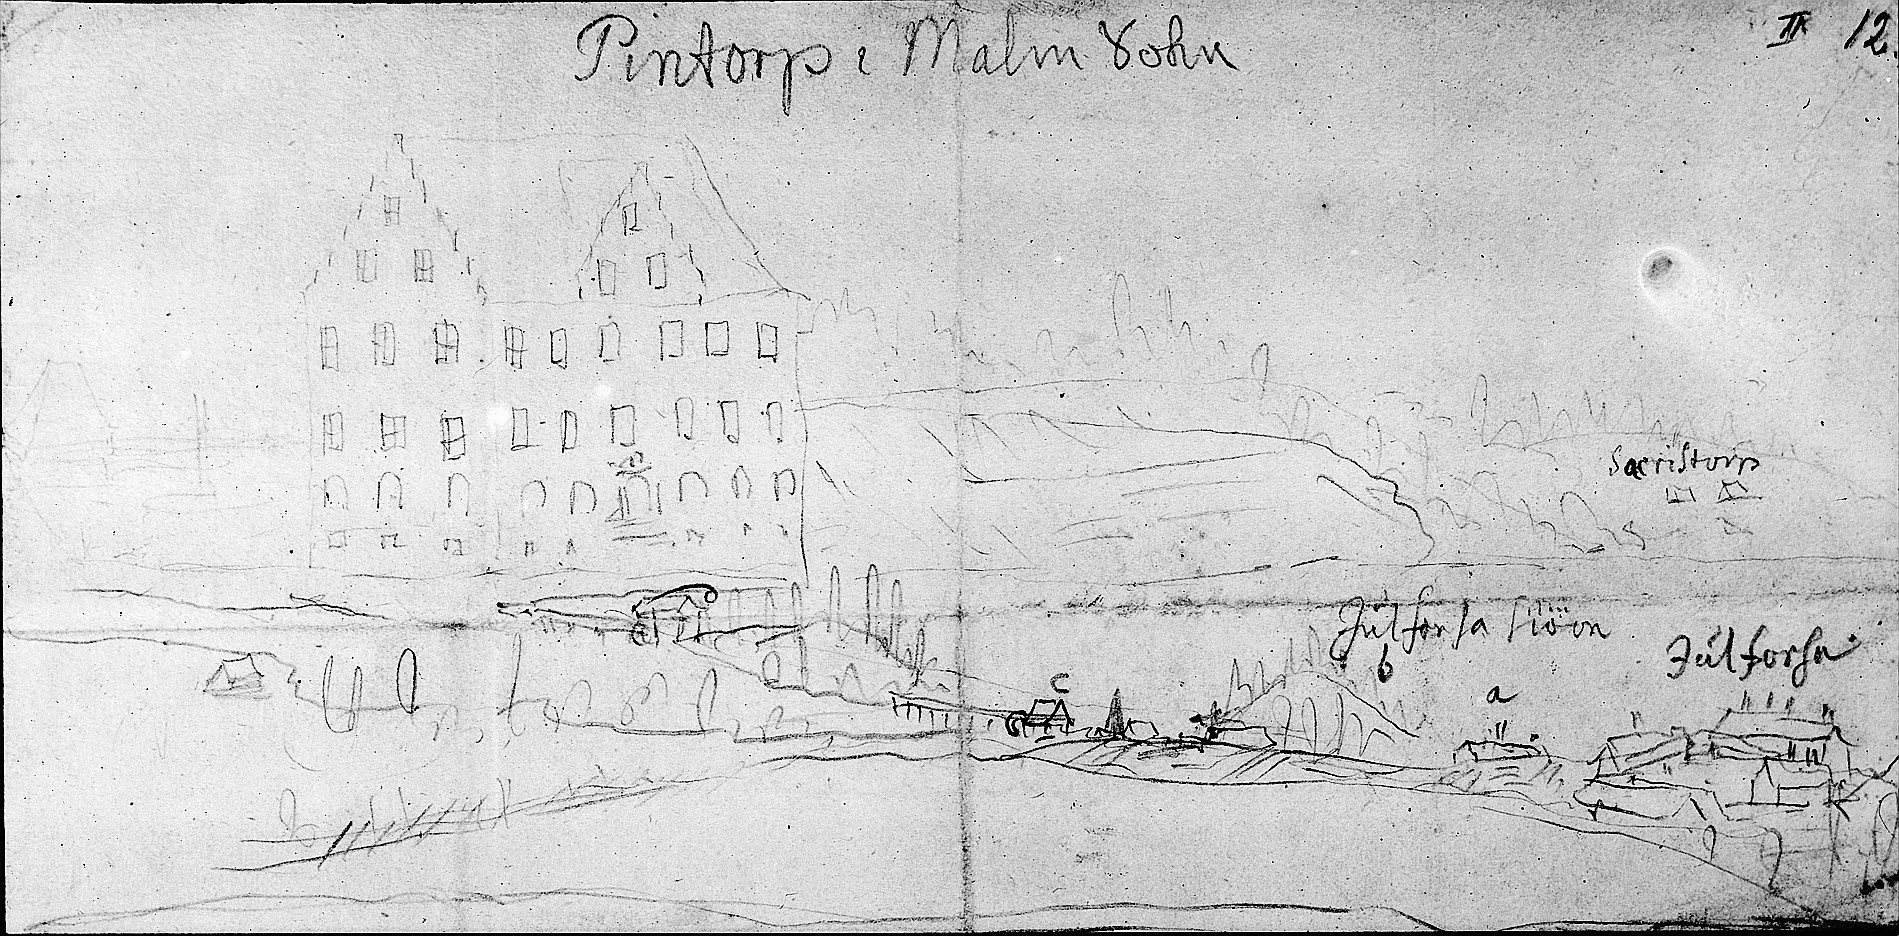 Pintorp i Malm Sohn
II 12.
Sacristorp
Jülforsa siöön
b
Jülforsa
a
c